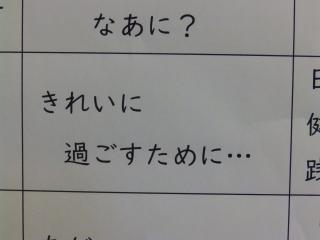 なあに？
きれいに
過ごすために…